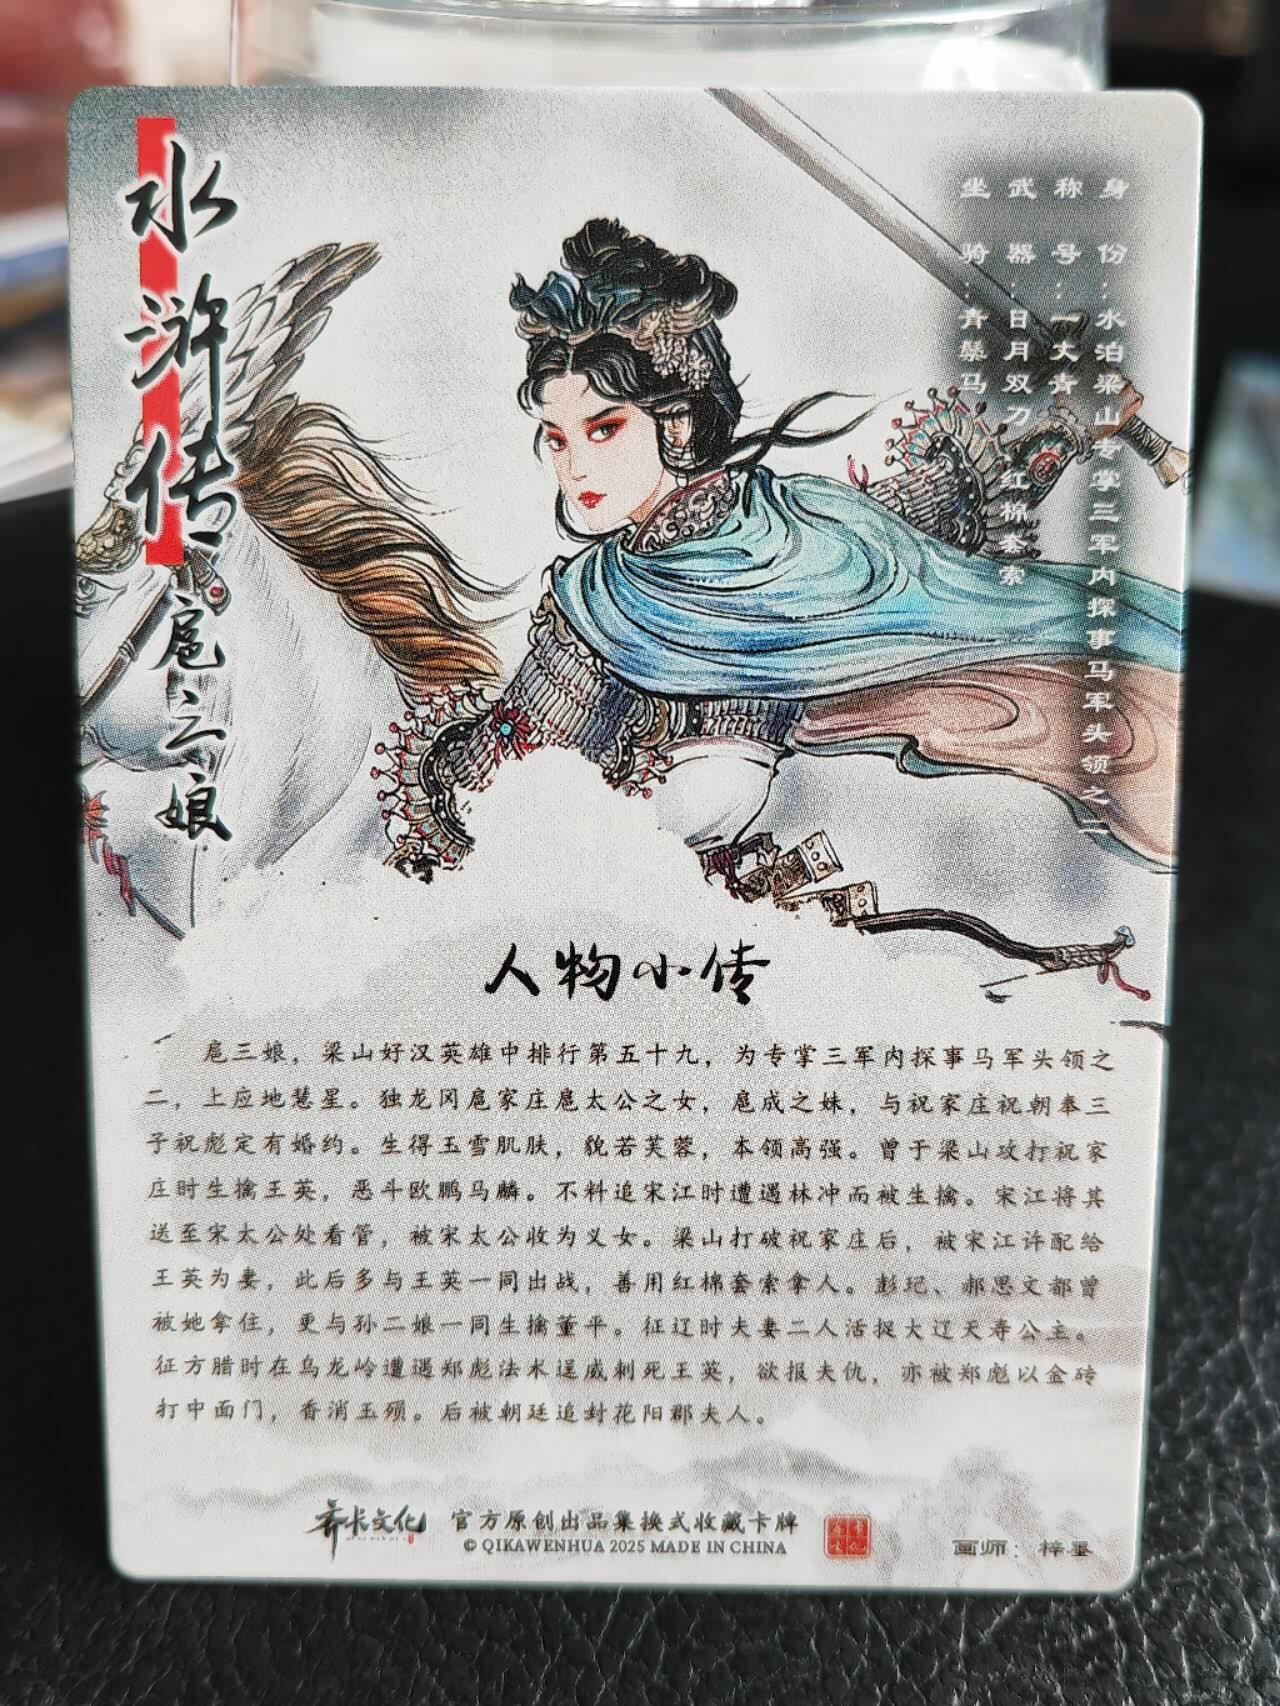 水浒传
扈三娘
身份：水泊梁山专掌三军内探事马军头领之二
称号：一丈青
武器：日月双刀 红棉套索
坐骑：青鬃马
人物小传
扈三娘，梁山好汉英雄中排行第五十九，为专掌三军内探事马军头领之
二，上应地慧星。独龙冈扈家庄扈太公之女，扈成之妹，与祝家庄祝朝奉三
子祝彪定有婚约。生得玉雪肌肤，貌若芙蓉，本领高强。曾于梁山攻打祝家
庄时生擒王英，恶斗欧鹏马麟。不料追宋江时遭遇林冲而被生擒。宋江将其
送至宋太公处看管，被宋太公收为义女。梁山打破祝家庄后，被宋江许配给
王英为妻，此后多与王英一同出战，善用红棉套索拿人。彭玘、郝思文都曾
被她拿住，更与孙二娘一同生擒董平。征辽时夫妻二人活捉大辽天寿公主。
征方腊时在乌龙岭遭遇郑彪法术逞威刺死王英，欲报夫仇，亦被郑彪以金砖
打中面门，香消玉殒。后被朝廷追封花阳郡夫人。
齐卡文化
官方原创出品集换式收藏卡牌
© QIKAWENHUA 2025 MADE IN CHINA
画师：梓墨